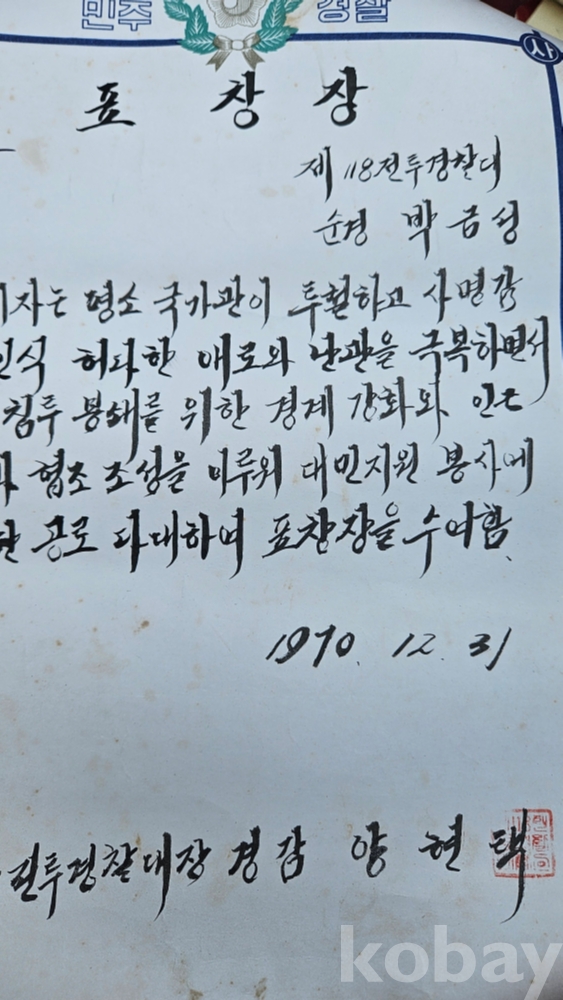 민주 경찰
사
표 창 장
제 118 전투경찰대
순경 박금성
자는 평소 국가관이 투철하고 사명감
인식 허다한 애로와 난관을 극복하면서
침투 봉쇄를 위한 경계 강화와 인근
협조 조성을 이루워 대민지원 봉사에
한 공로 다대하여 표창장을 수여함.
1970. 12. 31
전투경찰대장 경감 양현택
kobay